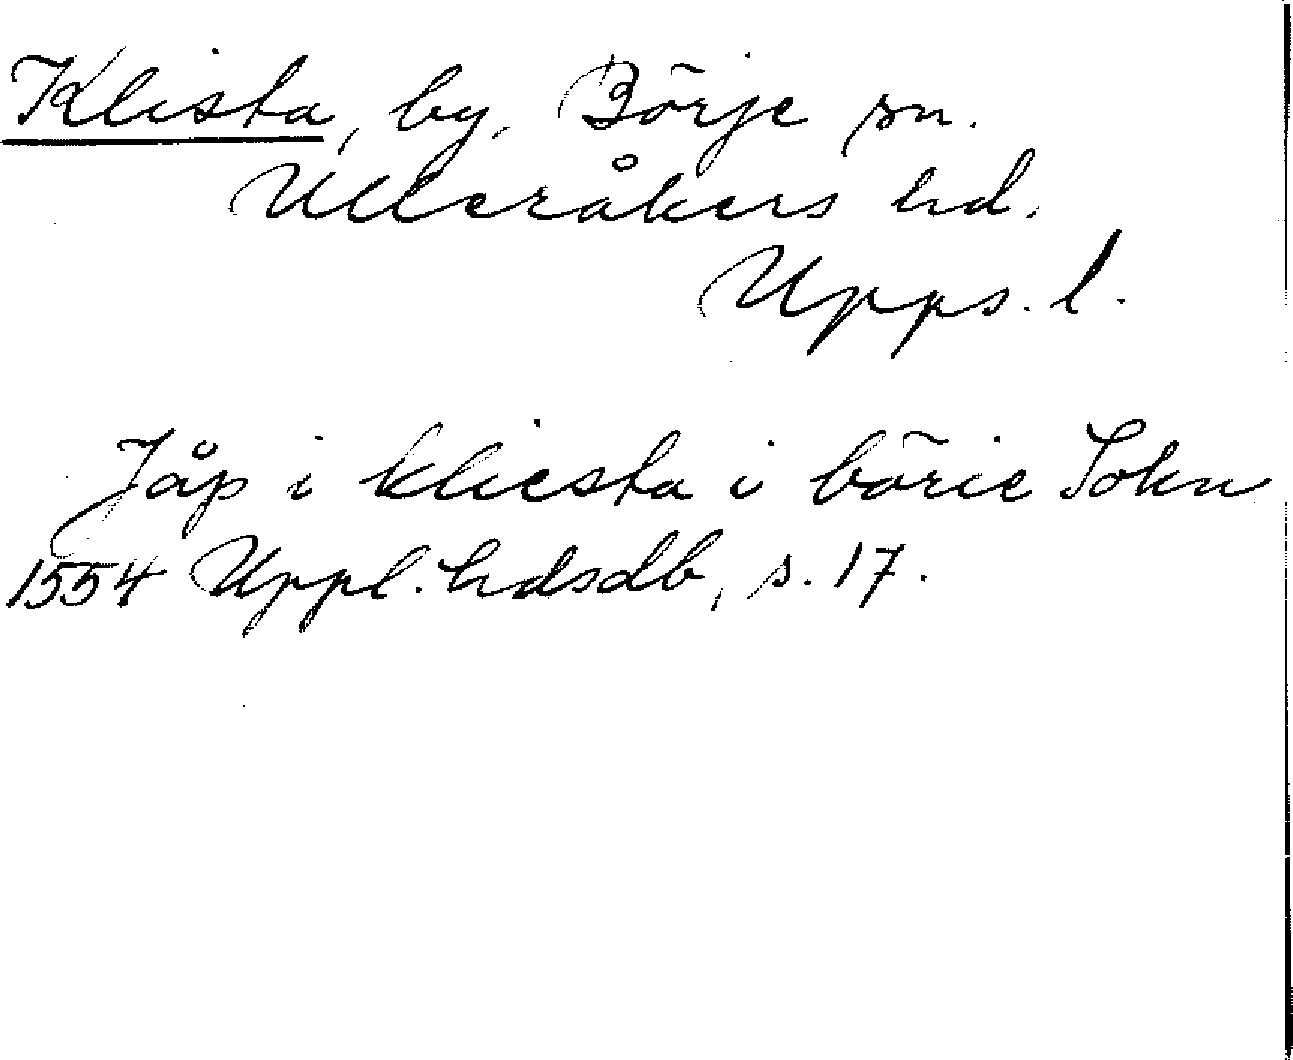 Klista, by, Börje sn.
Ulleråkers hd.
Upps. l.
Jåp i kliesta i börie Sokn
1554 Uppl. hdsdb, s. 17.